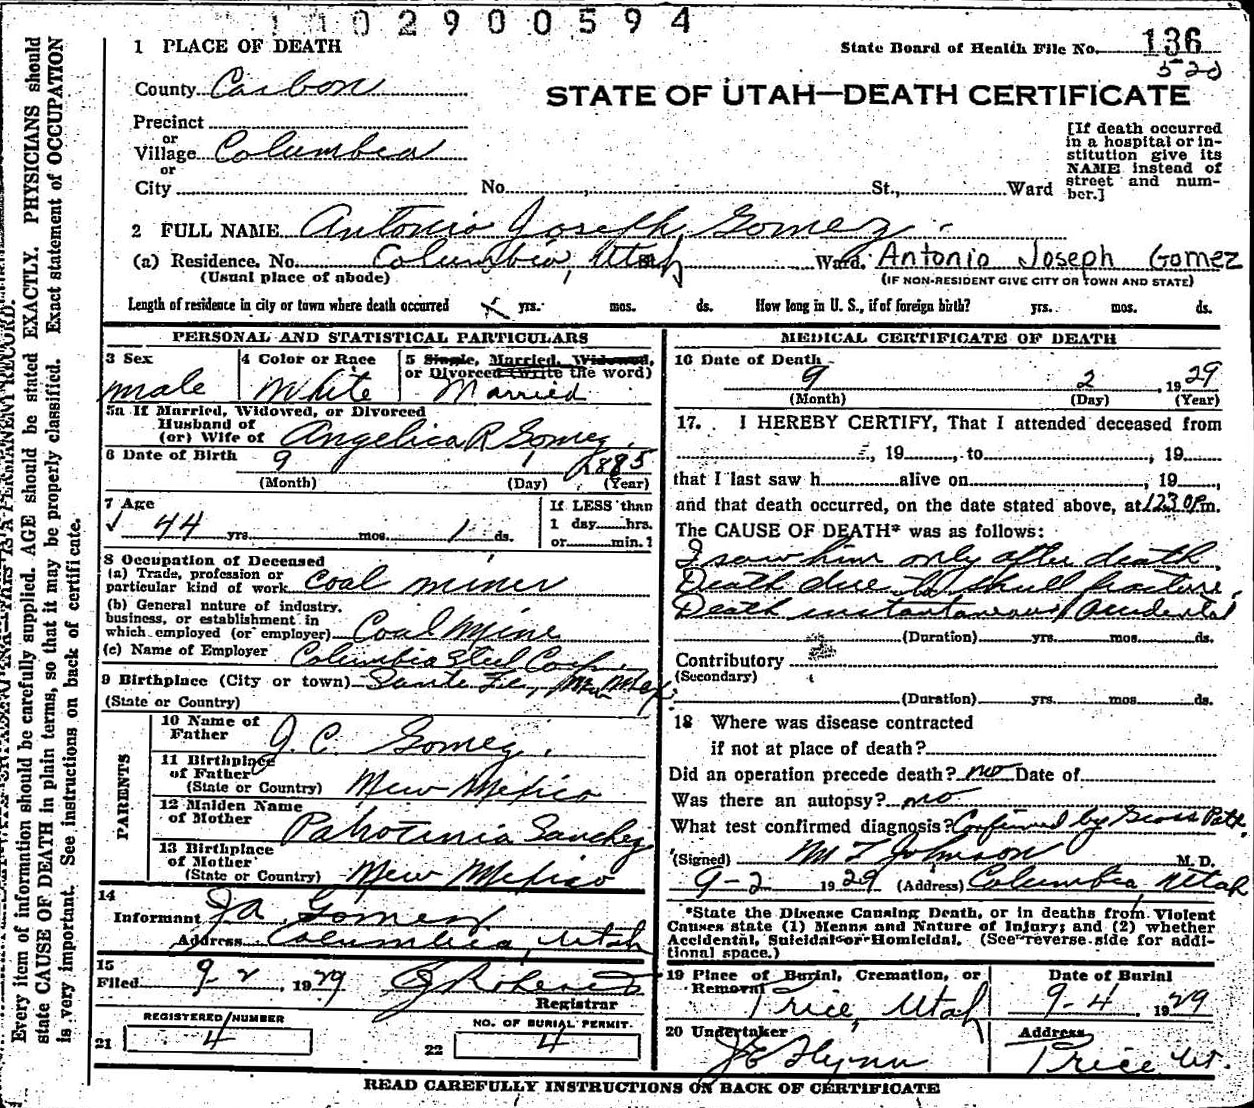 1 1 0 2 9 0 0 5 9 4
1 PLACE OF DEATH
State Board of Health File No. 136
520
County Carbon
STATE OF UTAH—DEATH CERTIFICATE
Precinct
or
Village Columbia
or
City No. St., Ward
[If death occurred
in a hospital or in-
stitution give its
NAME instead of
street and num-
ber.]
2 FULL NAME Antonio Joseph Gomez
(a) Residence. No. Columbia, Utah St. Ward. Antonio Joseph Gomez
(Usual place of abode) (IF NON-RESIDENT GIVE CITY OR TOWN AND STATE)
Length of residence in city or town where death occurred yrs. mos. ds. How long in U. S., if of foreign birth? yrs. mos. ds.
PERSONAL AND STATISTICAL PARTICULARS
3 Sex
male
4 Color or Race
White
5 Single, Married, Widowed,
or Divorced (write the word)
Married
5a If Married, Widowed, or Divorced
Husband of
(or) Wife of Angelica R Gomez
6 Date of Birth
9 1 1885
(Month) (Day) (Year)
7 Age
44 yrs. mos. 1 ds.
If LESS than
1 day hrs.
or min.?
8 Occupation of Deceased
(a) Trade, profession or
particular kind of work Coal miner
(b) General nature of industry,
business, or establishment in
which employed (or employer) Coal Mine
(c) Name of Employer Columbia Steel Corp.
9 Birthplace (City or town) Sante Fe, New Mex.
(State or Country)
PARENTS
10 Name of
Father J. C. Gomez
11 Birthplace
of Father
(State or Country) New Mexico
12 Maiden Name
of Mother Sanchez
13 Birthplace
of Mother
(State or Country) New Mexico
14
Informant J A Gomez
Address Columbia, Utah
15
Filed 9-2, 1929
Registrar
REGISTERED NUMBER
21 4
NO. OF BURIAL PERMIT
22 4
MEDICAL CERTIFICATE OF DEATH
16 Date of Death
9 2 1929
(Month) (Day) (Year)
17. I HEREBY CERTIFY, That I attended deceased from
, 19 , to , 19
that I last saw h alive on , 19 ,
and that death occurred, on the date stated above, at 1230 P.m.
The CAUSE OF DEATH* was as follows:
I saw him only after death.
Death due to skull fracture.
Death instantaneous, Accidental
(Duration) yrs. mos. ds.
Contributory
(Secondary)
(Duration) yrs. mos. ds.
18 Where was disease contracted
if not at place of death?
Did an operation precede death? no Date of
Was there an autopsy? no
What test confirmed diagnosis? Confirmed by Gross Path.
(Signed) M T Johnson M. D.
9-2 1929 (Address) Columbia Utah
*State the Disease Causing Death, or in deaths from Violent
Causes state (1) Means and Nature of Injury; and (2) whether
Accidental, Suicidal or Homicidal. (See reverse side for addi-
tional space.)
19 Place of Burial, Cremation, or
Removal Price, Utah
Date of Burial
9-4, 1929
20 Undertaker
J E Flynn
Address
Price Ut.
READ CAREFULLY INSTRUCTIONS ON BACK OF CERTIFICATE
Every item of information should be carefully supplied. AGE should be stated EXACTLY. PHYSICIANS should
state CAUSE OF DEATH in plain terms, so that it may be properly classified. Exact statement of OCCUPATION
is very important. See instructions on back of certificate.